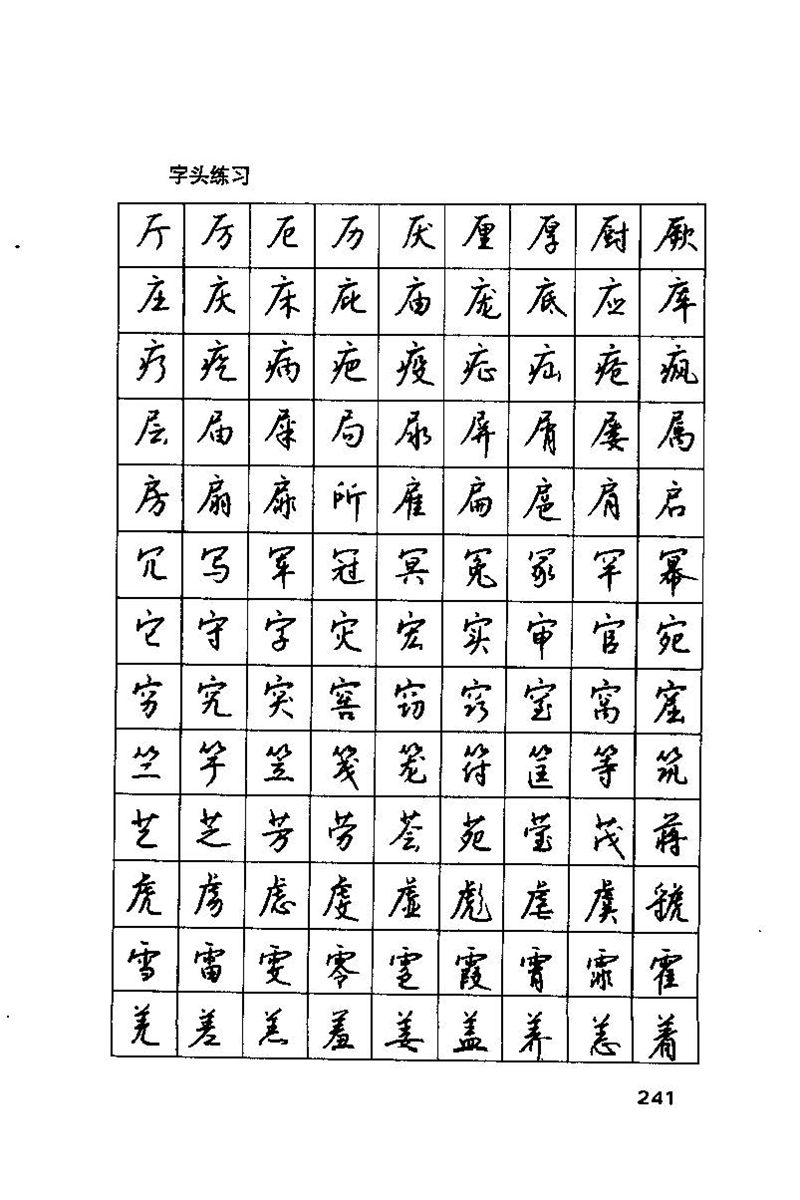 字头练习
厅 厉 厄 历 厌 厘 厚 厨 厥
庄 庆 床 庇 庙 庞 底 应 库
疗 疙 病 疤 疫 疮 疯
层 届 屎 局 尿 屏 屑 屡 属
房 扇 扉 所 雇 扁 扈 肩 启
冗 写 军 冠 冥 冤 冢 罕 幂
它 守 字 灾 宏 实 审 官 宛
穷 究 突 窖 窃 窍 室 窝 窟
竺 竽 笠 笺 笼 符 筐 等 筑
芝 芳 劳 荟 苑 莹 茂 蒋
虎 虏 虑 虔 虚 彪 虐 虞 虢
雪 雷 雯 零 霆 霞 霄 霖 霍
羌 差 羔 羞 姜 盖 养 恙 着
241